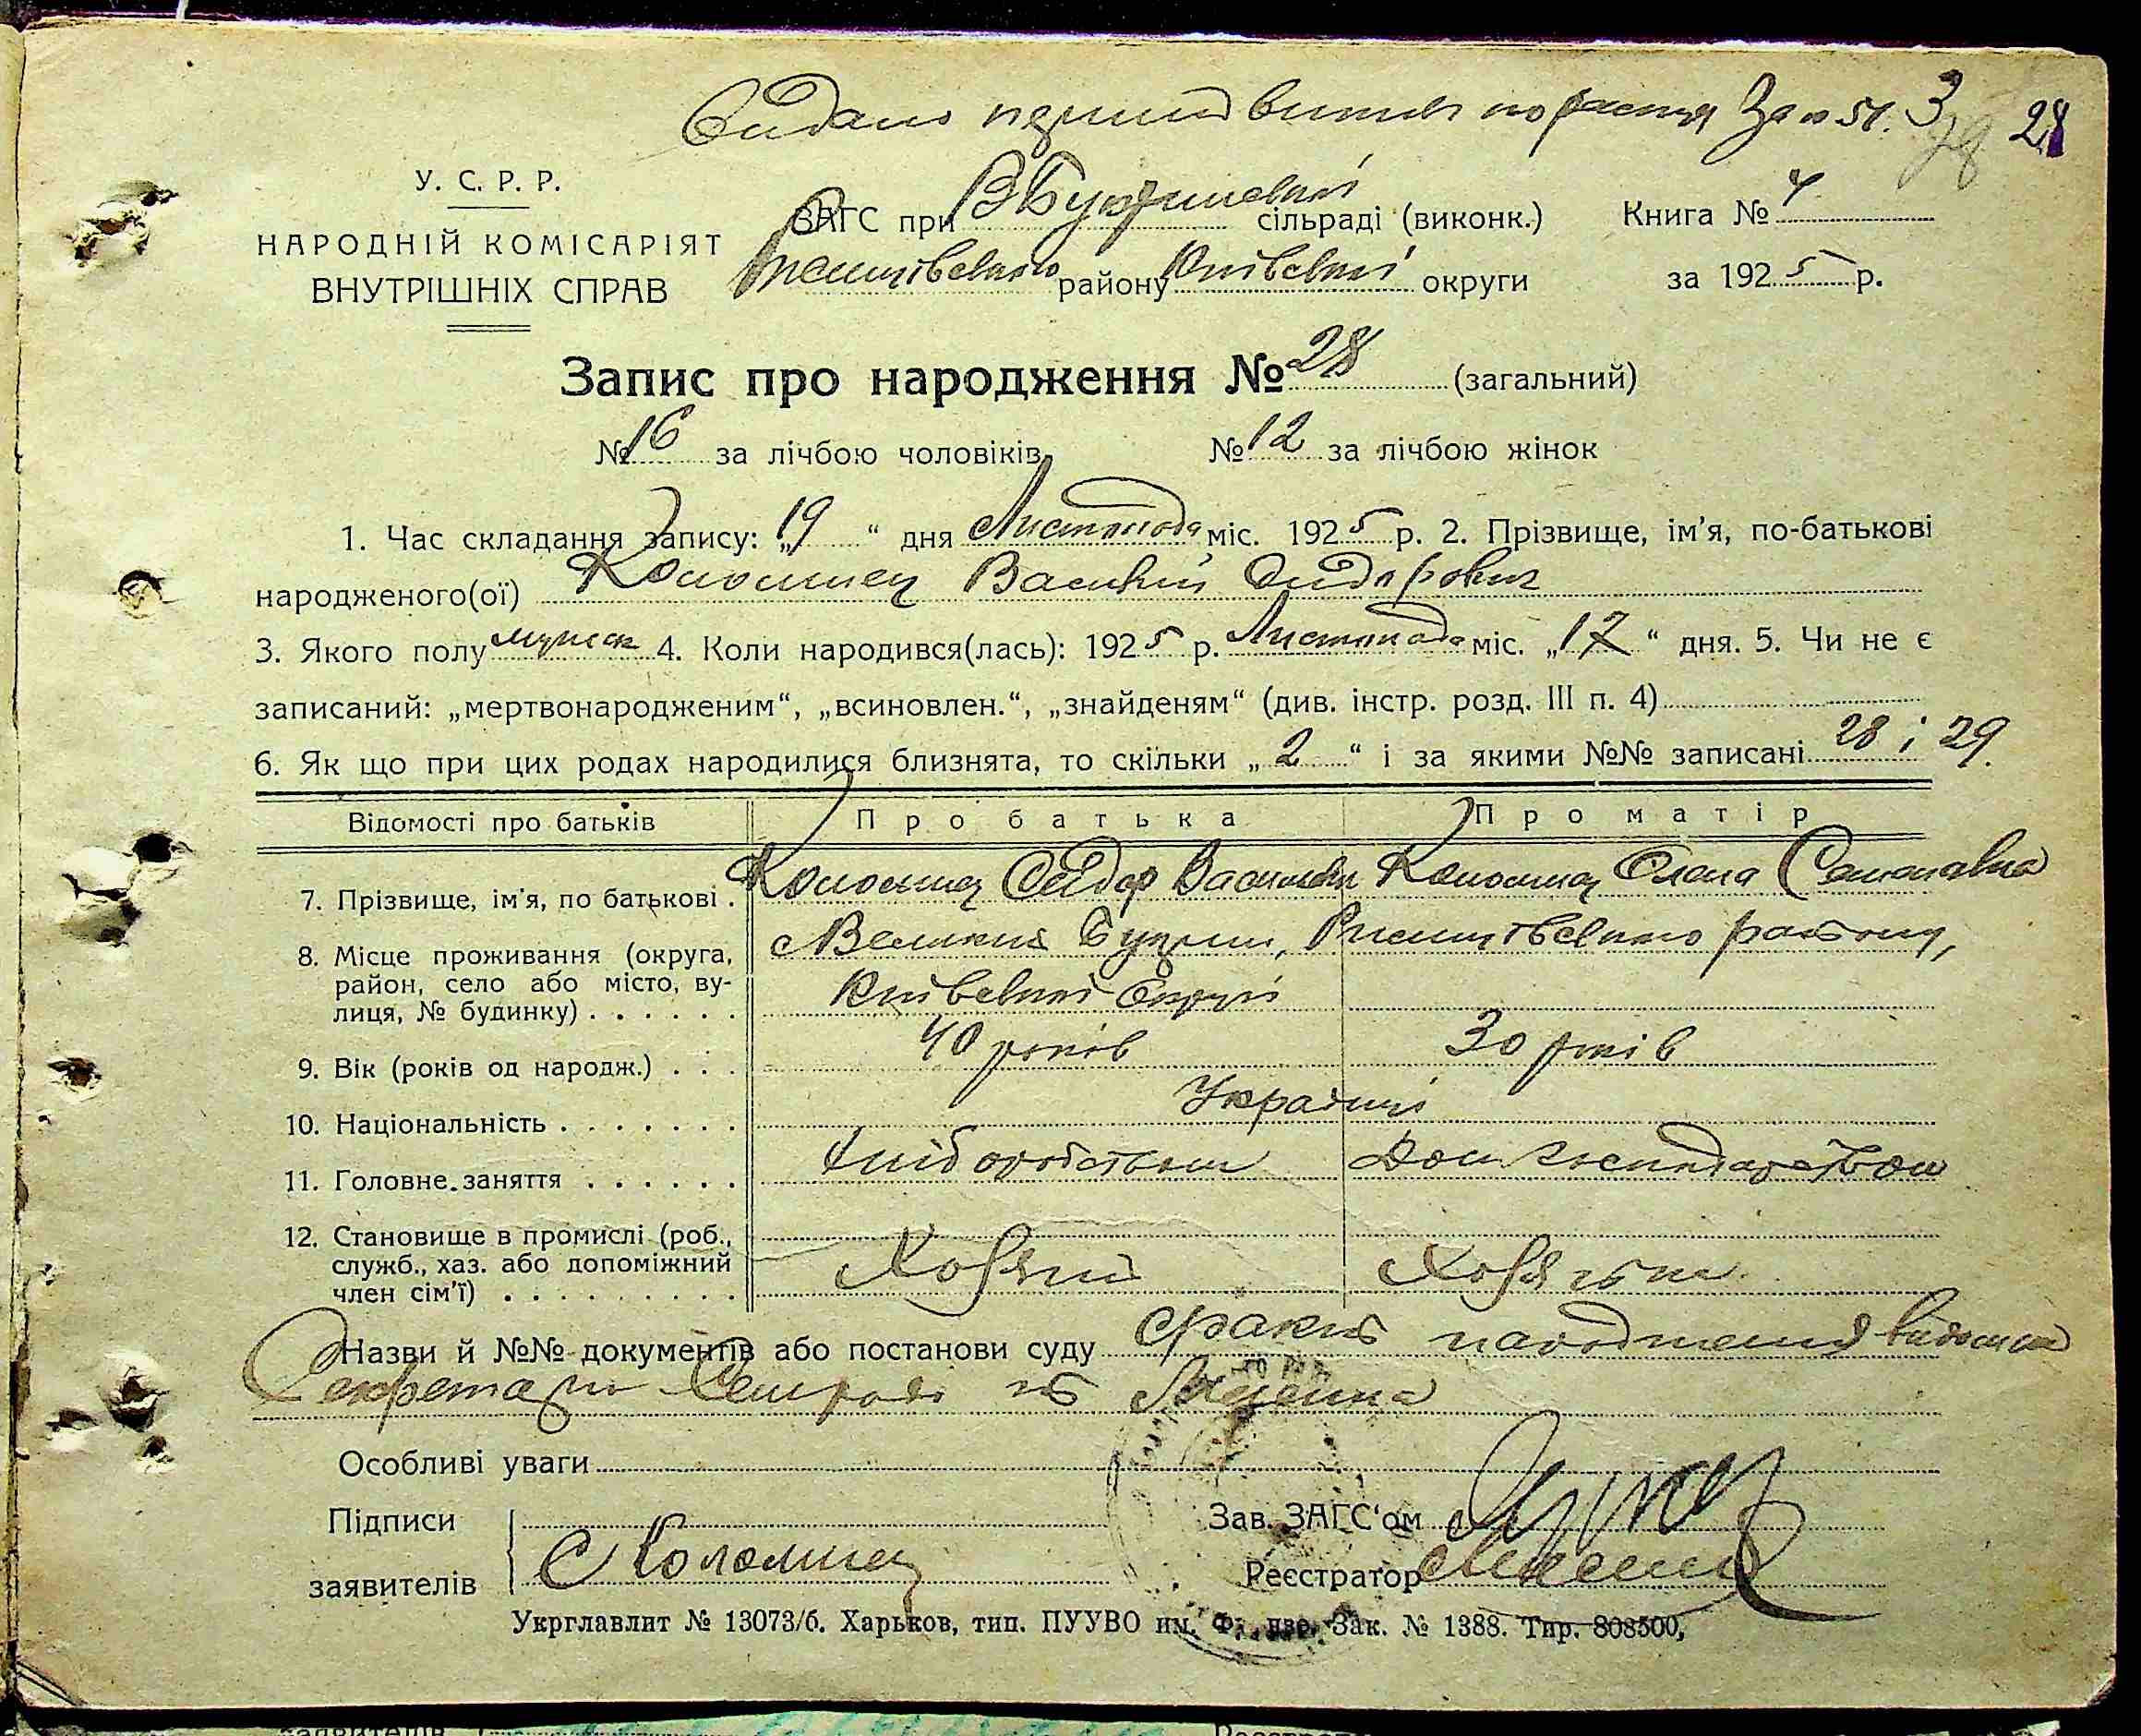 Видано перший витяг по 51. 3 28
У. С. Р. Р.
НАРОДНІЙ КОМІСАРІЯТ
ВНУТРІШНІХ СПРАВ
ЗАГС при ВБукринській сільраді (виконк.) Книга № 4
Ржищівського району Київської округи за 1925 р.
Запис про народження № 28 (загальний)
№ 16 за лічбою чоловіків № 12 за лічбою жінок
1. Час складання запису: „19“ дня Листопода міс. 1925 р. 2. Прізвище, ім'я, по-батькові
народженого(ої) Коломиец Василий Сидорович
3. Якого полу мужск 4. Коли народився(лась): 1925 р. Листопада міс. „17“ дня. 5. Чи не є
записаний: „мертвонародженим“, „всиновлен.“, „знайденям“ (див. інстр. розд. III п. 4)
6. Як що при цих родах народилися близнята, то скільки „2“ і за якими №№ записані 28 і 29.
Відомості про батьків Про батька Про матір
7. Прізвище, ім'я, по батькові . Коломиец Сидор Васильев Коломиец Олена Семеновна
8. Місце проживання (округа, район, село або місто, вулиця, № будинку) . . . . . . Великий Букрин, Ржищівського району,
Київської Округи
9. Вік (років од народж.) . . . 40 років 30 років
10. Національність . . . . . . . Українці
11. Головне заняття . . . . . . Хліборобством Дом господарством
12. Становище в промислі (роб., служб., хаз. або допоміжний член сім'ї) . . . . . . . . . Хозяин Хозяйка
Назви й №№ документів або постанови суду Факт народження
Секретарю Сельради
Особливі уваги
Підписи
заявителів С Коломиец
Зав. ЗАГС'ом
Реєстратор
Укрглавлит № 13073/б. Харьков, тип. ПУУВО им. Фрунзе. Зак. № 1388. Тир. 808500,